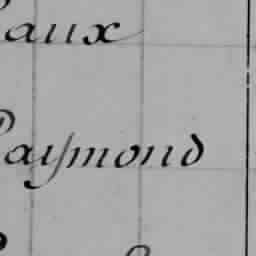 aux
Raymond